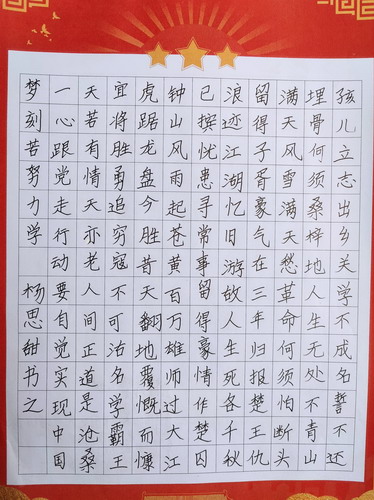 孩儿立志出乡关学不成名誓不还
埋骨何须桑梓地人生无处不青山
满天风雪满天愁革命何须怕断头
留得子胥豪气在三年归报楚王仇
浪迹江湖忆旧游故人生死各千秋
已摈忧患寻常事留得豪情作楚囚
钟山风雨起苍黄百万雄师过大江
虎踞龙盘今胜昔天翻地覆慨而慷
宜将胜勇追穷寇不可沽名学霸王
天若有情天亦老人间正道是沧桑
一心跟党走行动要自觉实现中国
梦刻苦努力学 杨思甜书之